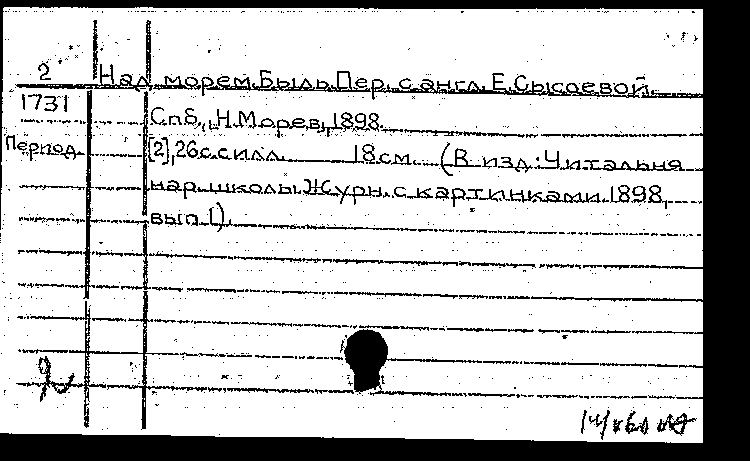 2 Над морем. Быль. Пер. с англ. Е. Сысоевой.
1731
Спб., Н. Морев, 1898.
Период. [2], 26 с. с илл. 18 см. (В изд.: Читальня
нар. школы. Журн. с картинками. 1898,
вып. 1).